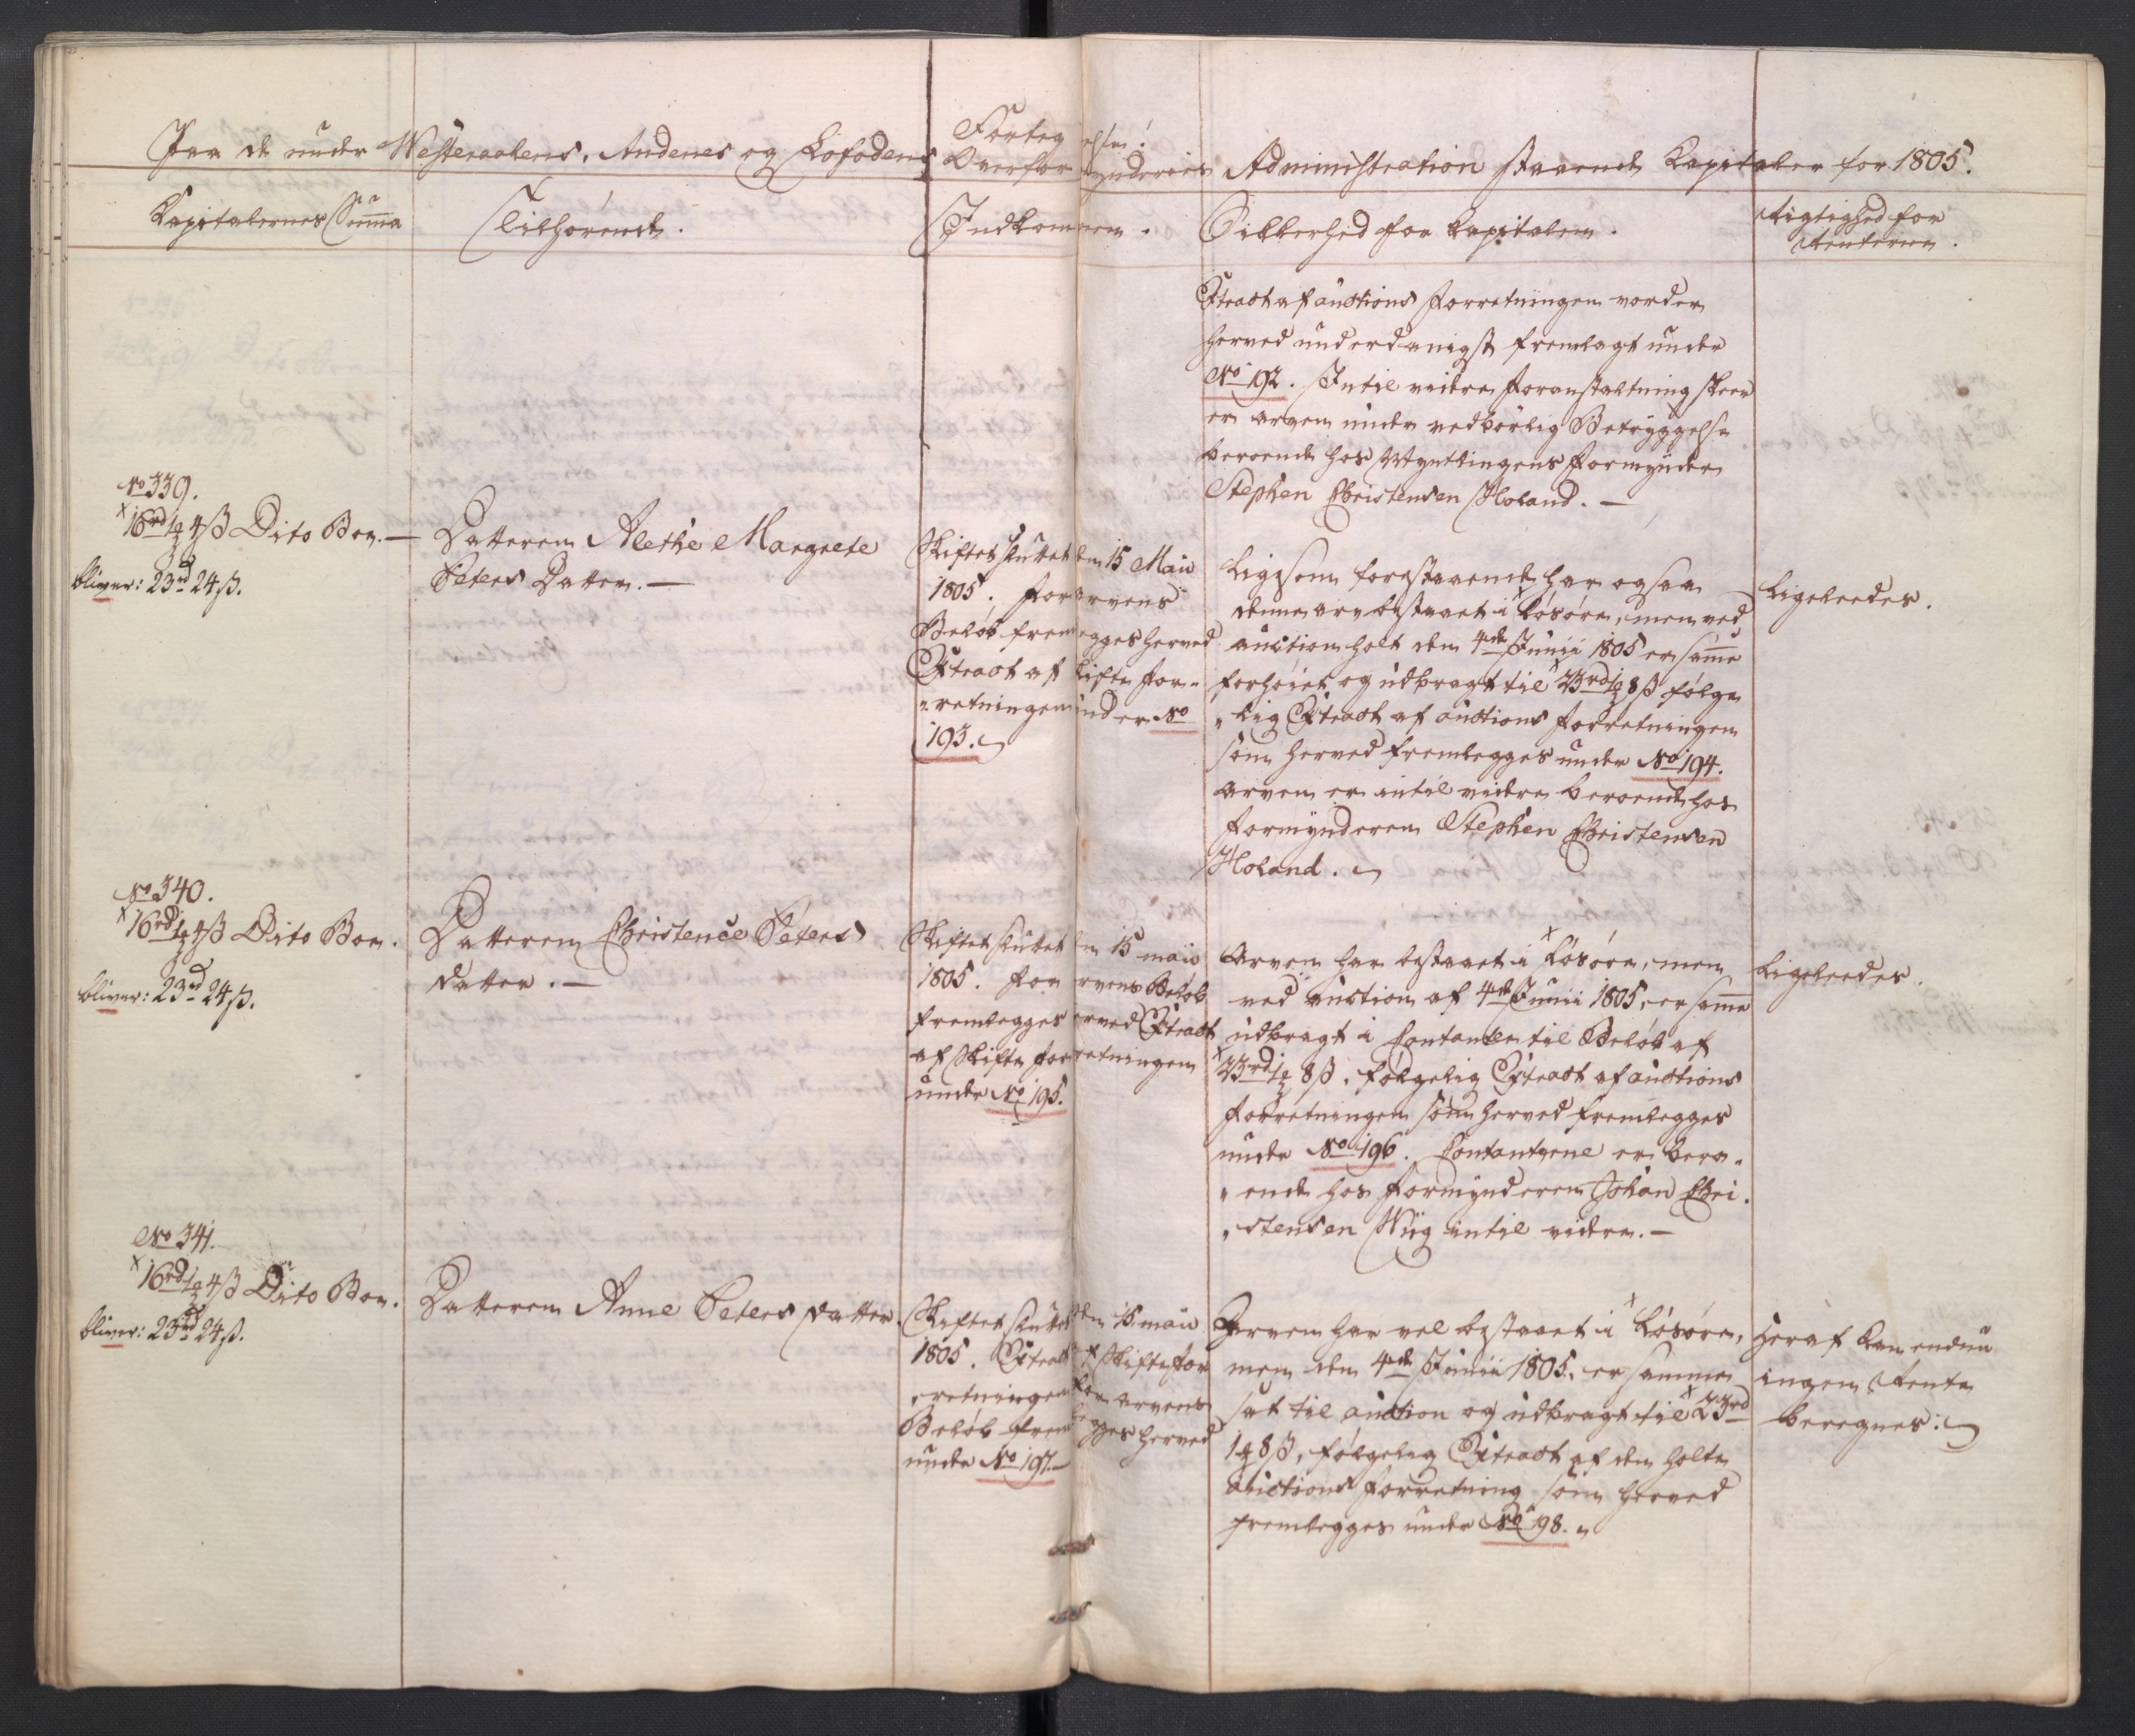 Forteg elsen!
Paa de under Westeraalens, Andenes og Lofodens Overfor mynderies Administration staaende Kapitaler for 1805.
Kapitalernes Suma
Tilhörende.
Indkom mem.
Sikkerhed for Kapitalen.
Rigtighed for
Renterne.
Extract af auctions Forretningen vorder
herved underdanigst fremlagt under
No 192. Intil videre Foranstaltning skeer
er arven under vedbörlig Betryggelse
beroende hos Myndlingens Formynder
Stephen Christensen Holand. —
No 339.
16 rd 1 4 ß Dito Bon. —
bliver: 23 rd 24 ß.
Datteren Alethe Margrete
Peters Datter. —
Skiftet sluttet den 15 Maii
1805. For arvens
Belöb frem legges herved
Extract af Skifte For-
retningen under No
193.
Ligesom forestaaende har ogsaa
denne arv bestaaet i Lösöre, men ved
auction holt den 4de Junii 1805 er same
forhöiet og udbragt til 23 rd 1 8 ß fölge
lig Extract af auctions forretningen
som herved fremlegges under No 194.
arven er intil videre beroende hos
formynderen Stephen Christensen
Holand.
Ligeleedes.
No 340.
16 rd 1 4 ß Dito Bon.
bliver: 23 rd 24 ß.
Datteren Christence Peters
datter. —
Skiftet sluttet den 15 maii
1805. For arvens Belöb
fremlegges herved Extract
af Skifte for retningen
under No 195.
Arven har bestaaet i Lösöre, men
ved auction af 4de Junii 1805, er same
udbragt i Contanter til Belöb af
23 rd 1 8 ß. fölgelig Extract af auctions
forretningen som herved fremlegges
under No 196. Contanterne er bero-
ende hos formynderen Johan Chri-
stensen Wiig intil videre. —
Ligeleedes.
No 341.
16 rd 1 4 ß Dito Bon.
bliver: 23 rd 24 ß.
Datteren Anne Peters datter.
Skiftet sluttet den 15 maii
1805. Extract af Skifte for
retningen for arvens
Belöb frem legges herved
under No 197. —
Arven har vel bestaaet i Lösöre,
men den 4de Junii 1805, er samme
sat til auction og udbragt til 23 rd
1 8 ß, fölgelig Extract af den holte
auctions forretning som herved
fremlegges under No 198.
Heraf kan endnu
ingen Rente
beregnes.